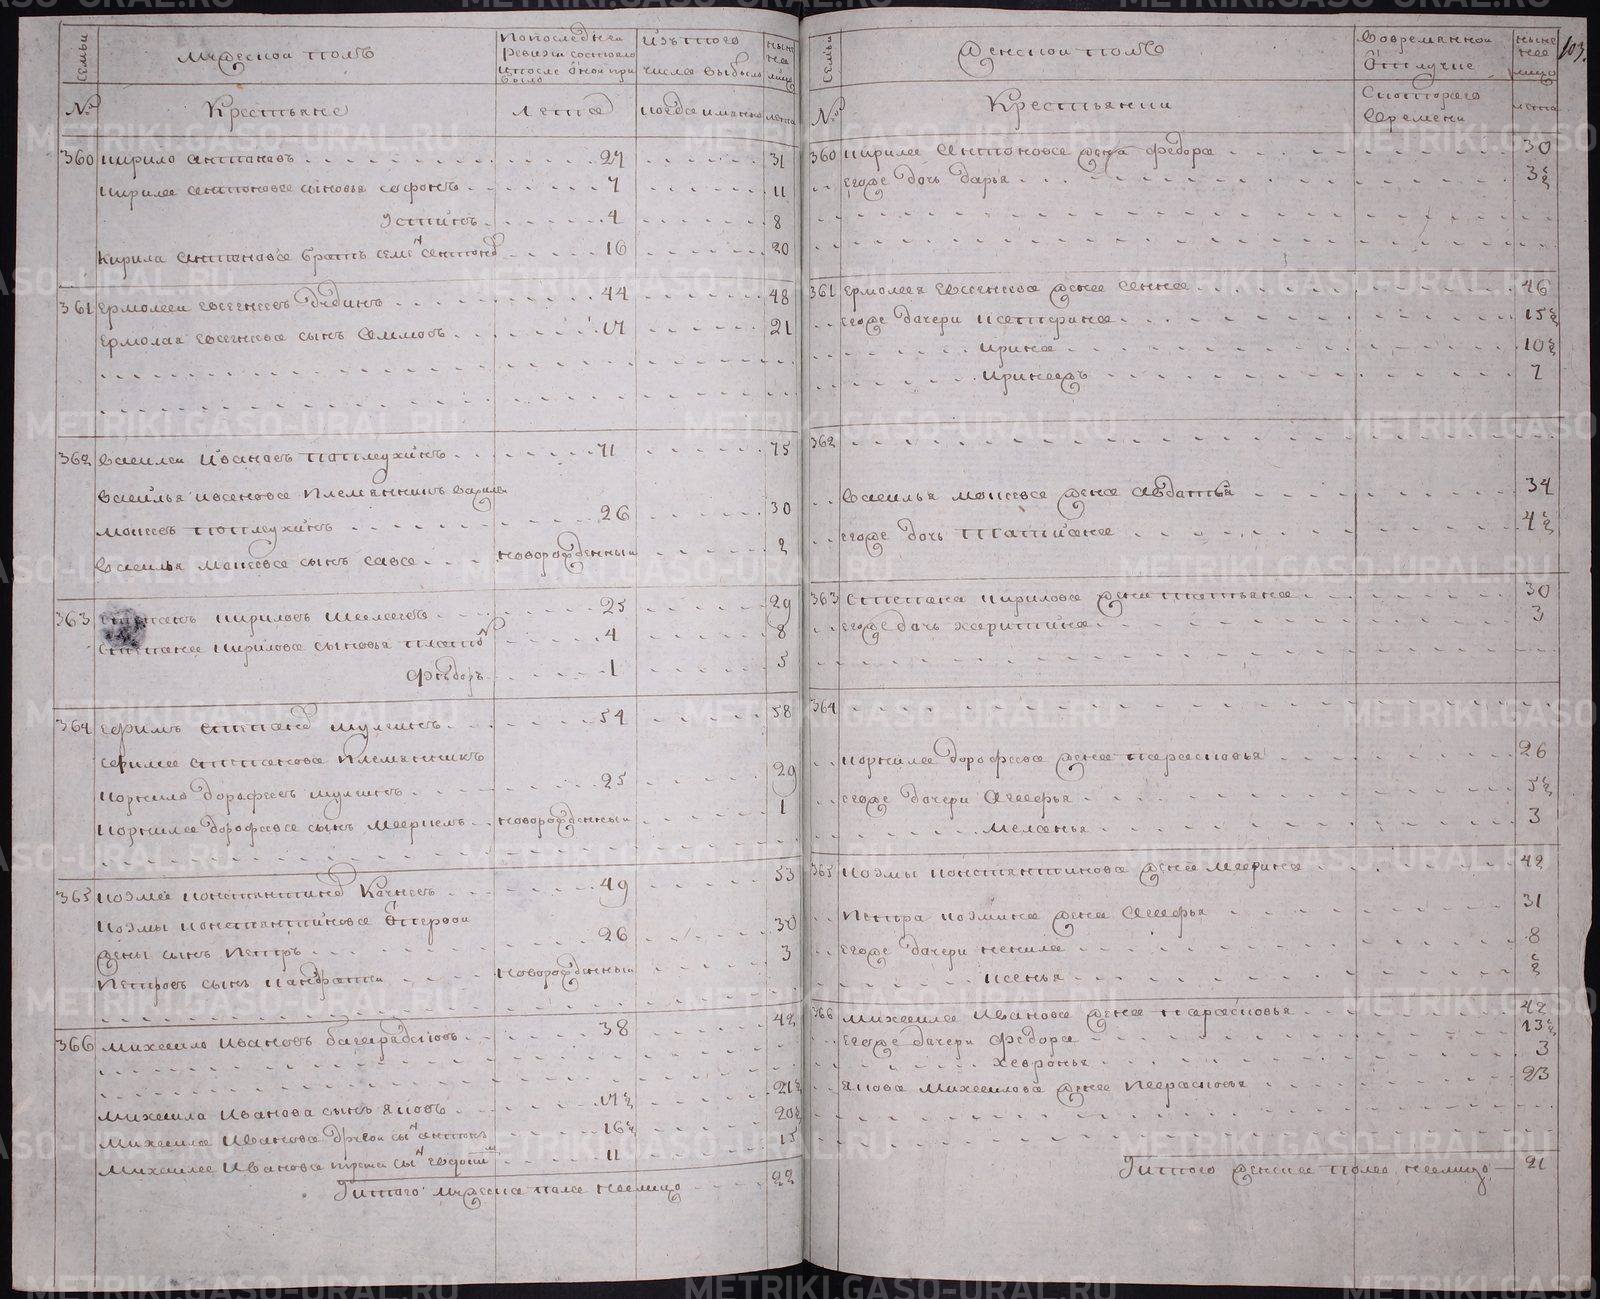 Семьи
Мужеской полъ
По последней ревизии состояло и после оной прибыло
Изъ того числа выбыло
ныне на лицо
№
Крестьяне
Лета
когда именно
лета
360 Кирило Антоновъ 27 31
Кирила Антонова сыновья Софонъ 7 11
Устинъ 4 8
Кирила Антонова братъ Семенъ Антоновъ 16 20
361 Ермолай Евсегнеевъ 44 48
Ермолая Евсегнеева сынъ 17 21
362 Василей Ивановъ 71 75
Василья Иванова племянникъ Василей
Моисеевъ 26 30
Василья Моисеева сынъ Сава новорожденный 2
363 Степанъ Кириловъ 25 29
Степана Кирилова сыновья Платонъ 4 8
Федоръ 1 5
364 Ефимъ Степановъ 54 58
Ефима Степанова племянникъ
Корнило Дорофеевъ 25 29
Корнила Дорофеева сынъ новорожденный 1
365 Козма Константиновъ 49 53
Козмы Константинова от первой
жены сынъ Петръ 26 30
Петровъ сынъ Панкратий новорожденный 3
366 Михаило Ивановъ 38 42
Михаила Иванова сынъ Яковъ 17½ 21½
Михаила Иванова другой сынъ Антонъ 16½ 20½
Михаила Иванова третей сынъ 11 15
Итого мужеска пола налицо 22
Семьи
Женской полъ
Во временной отлучке
ныне на лицо
103.
№
Крестьянки
С которого времени
лета
360 Кирила Антонова жена Федора 30
его же дочь Дарья 3½
361 Ермолая Евсегнеева жена Анна 46
его же дочери Катерина 15½
Ирина 10½
7
362
Василья Моисеева жена Авдотья 34
его же дочь Татиана 4½
363 Степана Кирилова жена Татьяна 30
его же дочь Харитина 3
364
Корнила Дорофеева жена Парасковья 26
его же дочери Агафья 5½
Меланья 3
365 Козмы Константинова жена Марина 42
Петра Козмина жена Агафья 31
его же дочери Ненила 8
Ксенья ½
366 Михаила Иванова жена Парасковья 42
его же дочери Федора 13½
Хевронья 3
Якова Михаилова жена Парасковья 23
Итого женска пола налицо 21
METRIKI.GASO-URAL.RU